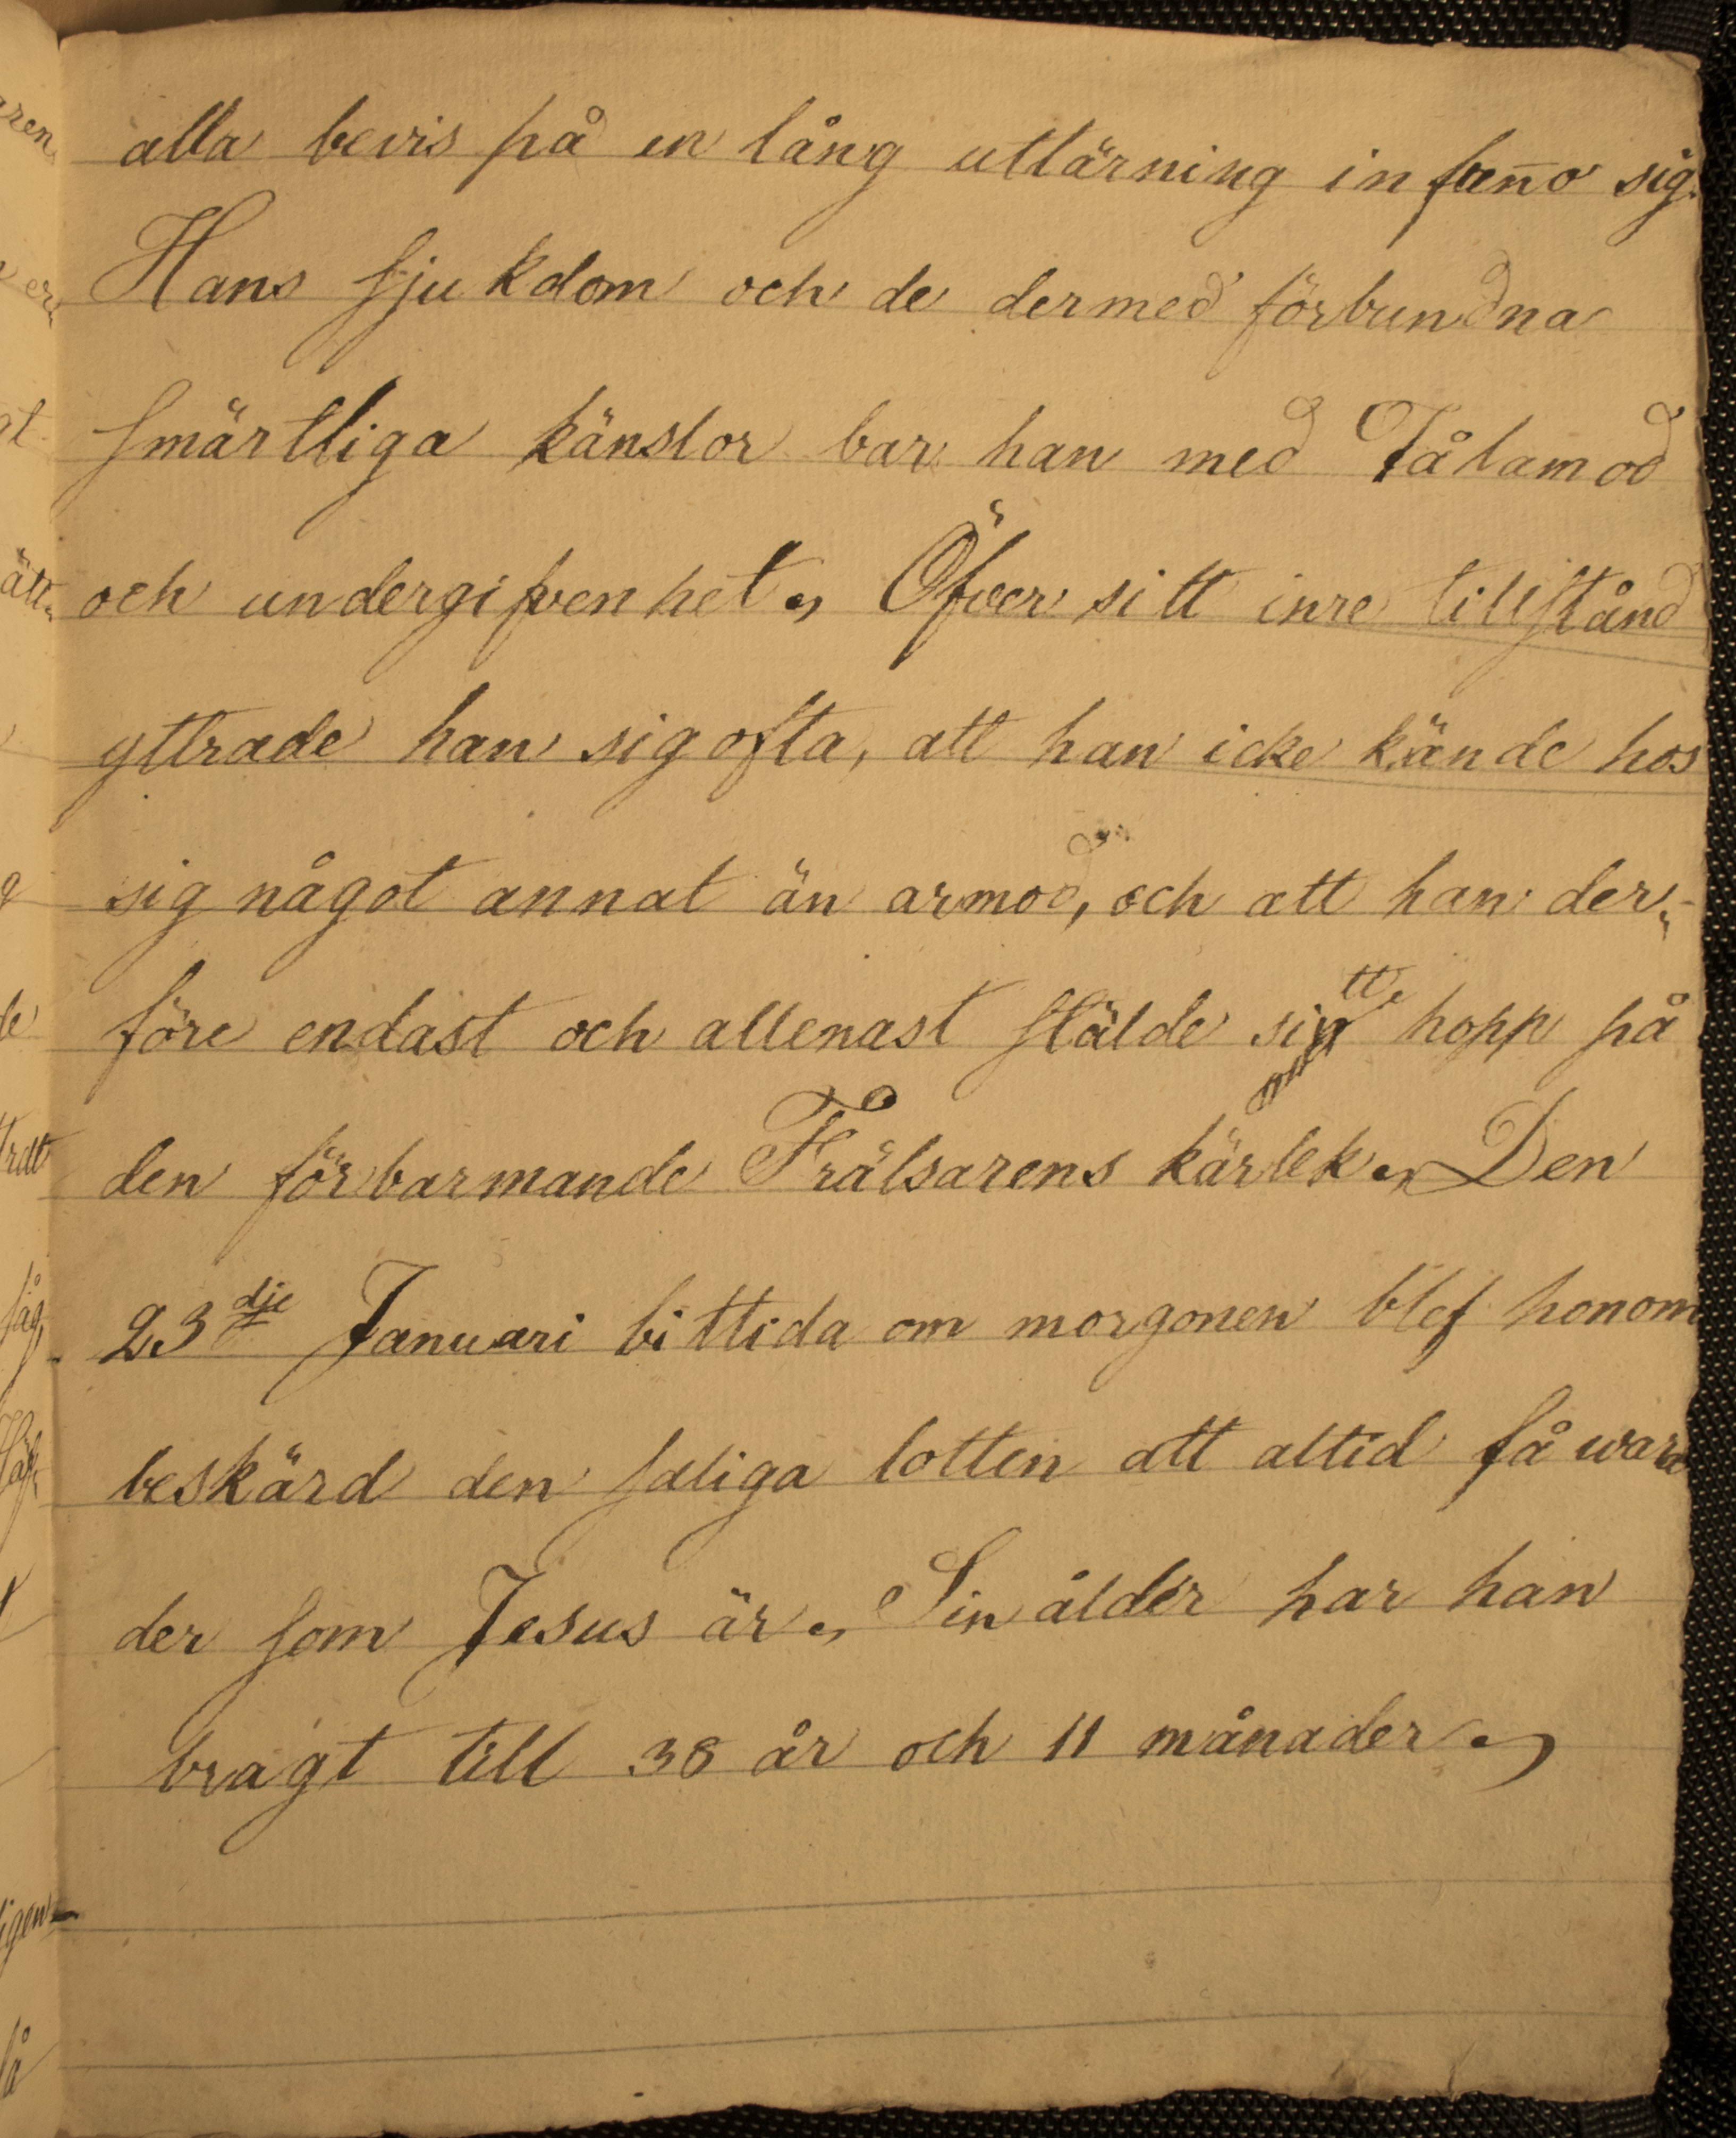 alla bevis på en lång uttärning infun̄o sig.
Hans sjukdom och de dermed förbundna
smärtliga känslor bar han med Tålamod
och undergifvenhet. Öfver sitt inre tillstånd
yttrade han sig ofta, att han icke kände hos
sig något annat än armod, och att han der-
före endast och allenast stälde sitt hopp på
den förbarmande Frälsarens kärlek. Den
23dje Januari bittida om morgonen blef honom
beskärd den saliga lotten att altid få wara
der som Jesus är. Sin ålder har han
bragt till 38 år och 11 månader.